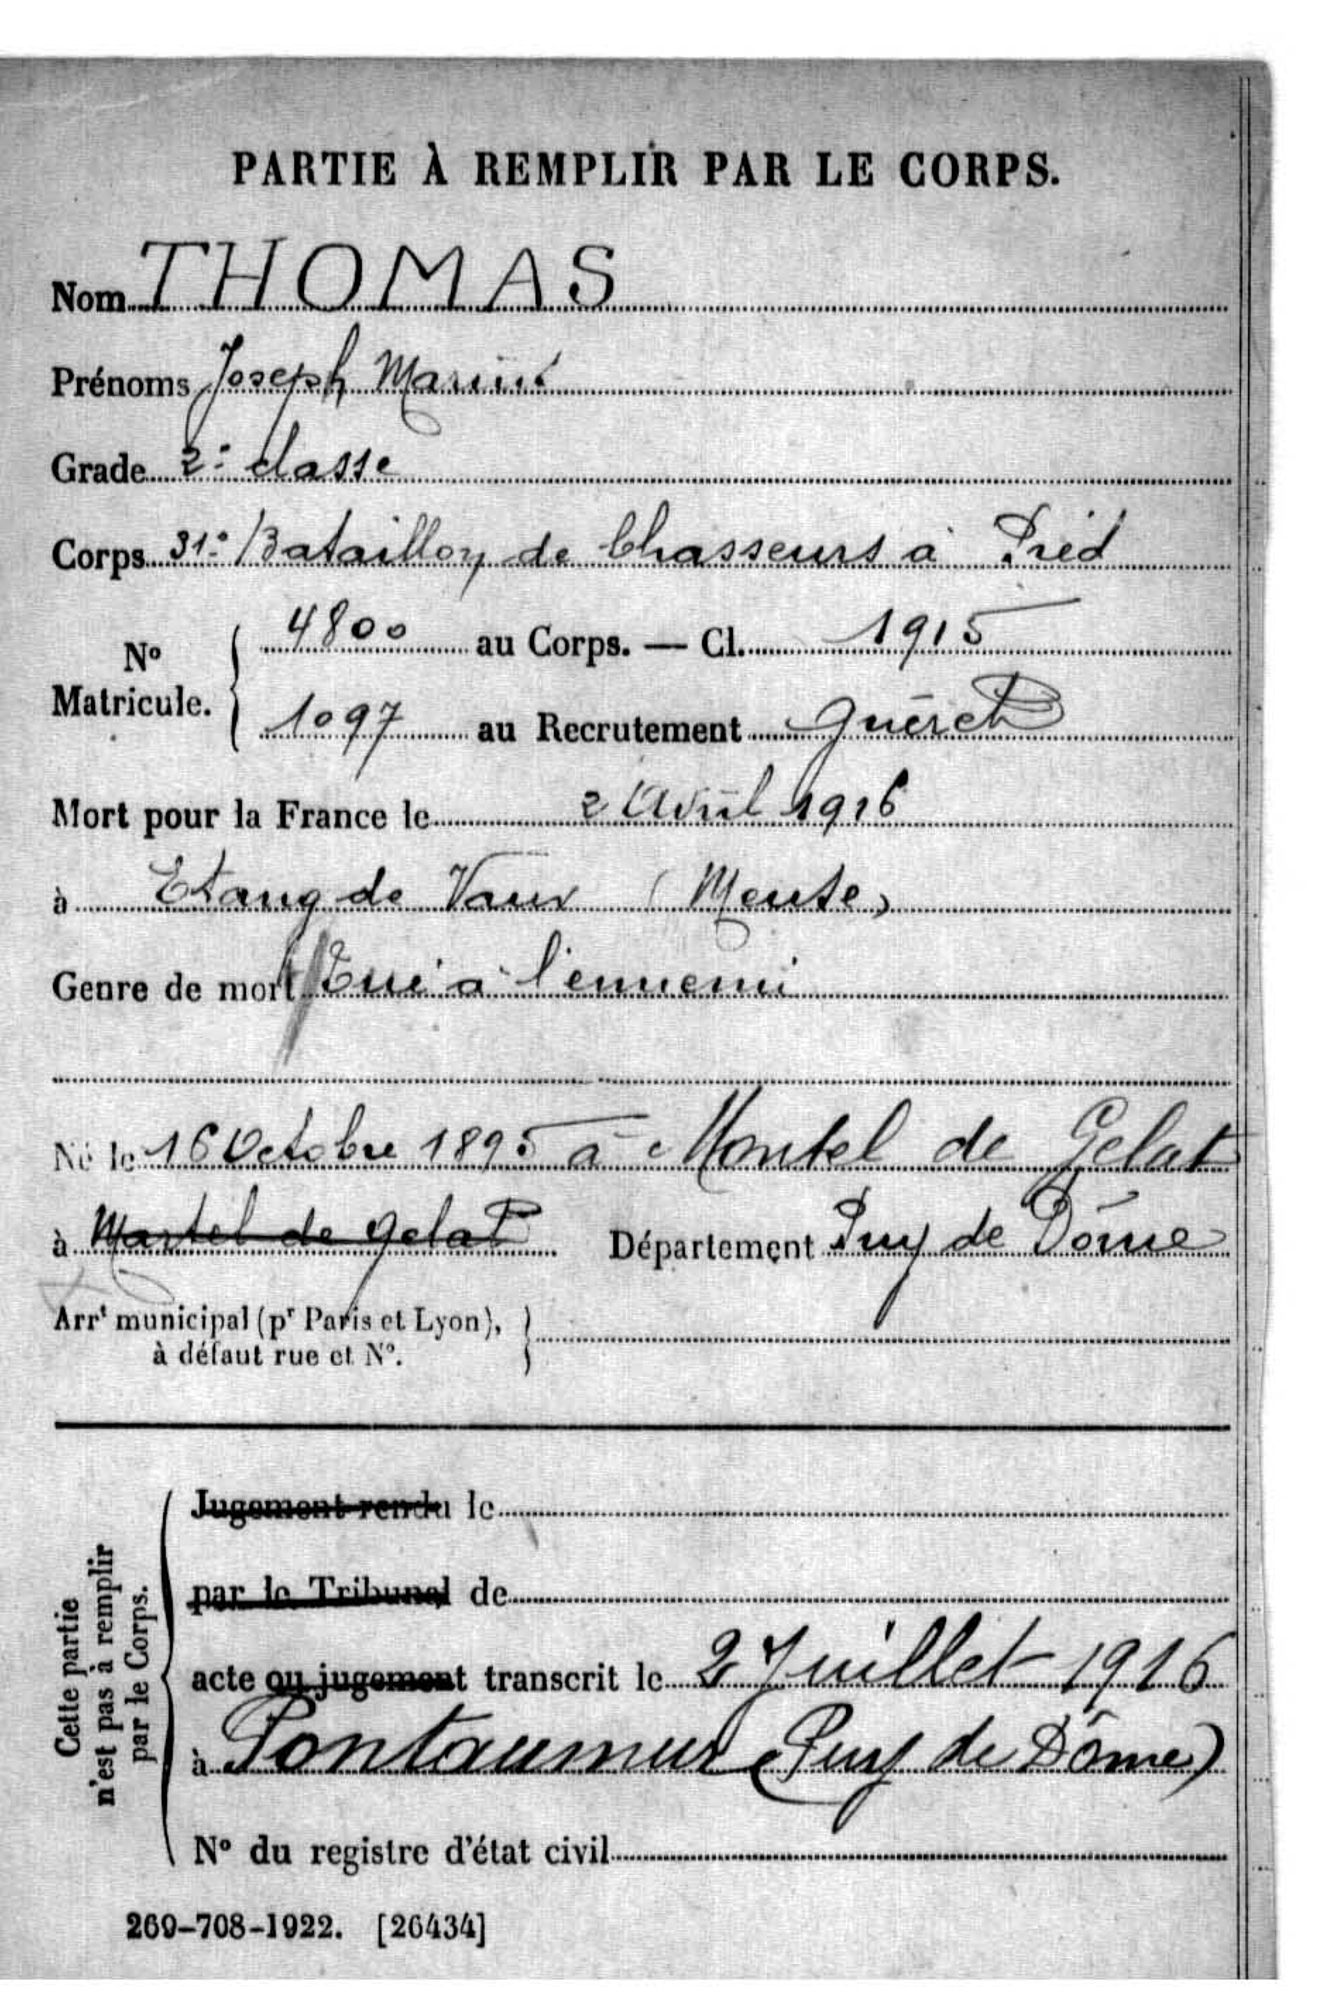 PARTIE À REMPLIR PAR LE CORPS.
Nom THOMAS
Prénoms Joseph
Grade 2e classe
Corps 31e Bataillon de Chasseurs à Pied
No Matricule. 4800 au Corps. — Cl. 1915
1097 au Recrutement Guéret
Mort pour la France le 2 Avril 1916
à Etang de Vaux (Meuse)
Genre de mort Tué à l'ennemi
Né le 16 Octobre 1895 à Montel de Gelat
à Martel de Gelat Département Puy de Dôme
Arrt municipal (pr Paris et Lyon),
à défaut rue et No.
Cette partie
n'est pas à remplir
par le Corps.
Jugement rendu le
par le Tribunal de
acte ou jugement transcrit le 2 Juillet 1916
à Pontaumur (Puy de Dôme)
No du registre d'état civil
269-708-1922. [26434]